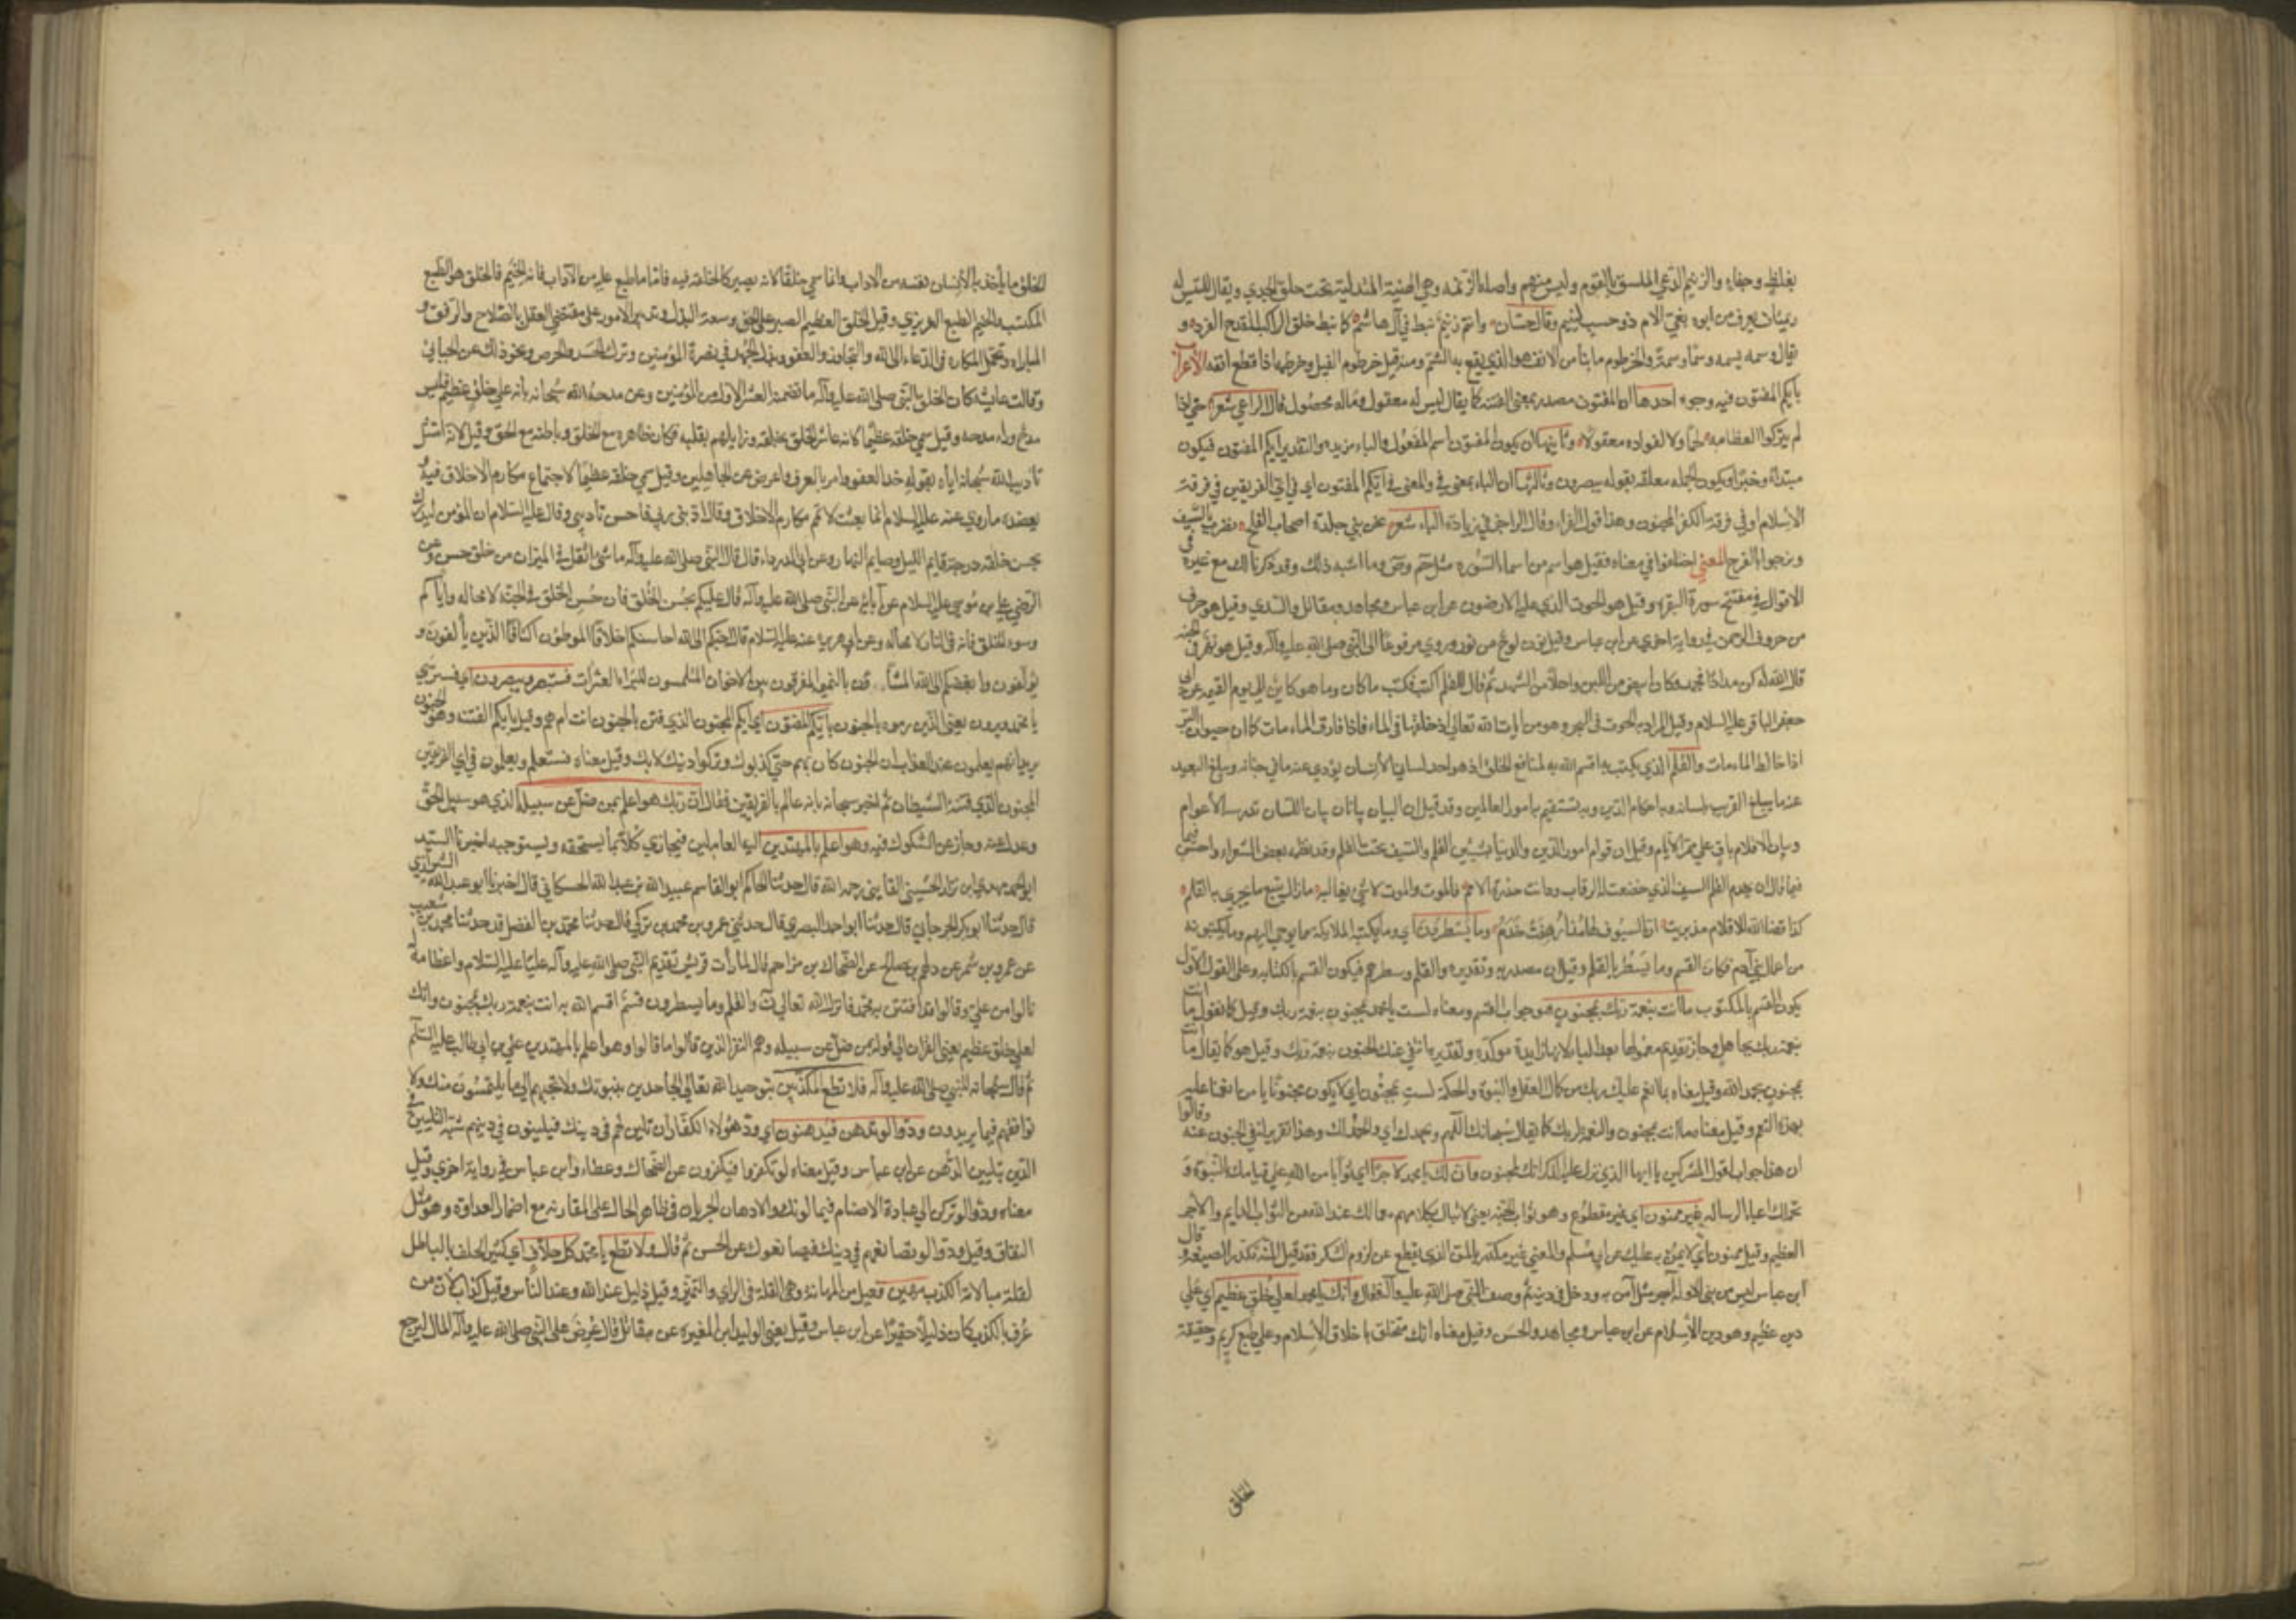 بغلظ وجفاء والزنيم الدعي الملصق بالقوم وليس منهم واصله الزنمة وهي الهنية المتدلية تحت حلق الجدي ويقال للتيس له
زنمتان يعرف من ابوه بغي الام ذو حسب لئيم وقال حسان وانتم زنيم نيط في آل هاشم كما نيط خلف الراكب القدح الفرد و
يقال وسمه يسمه وسما وسمة والخرطوم ما نتأ من الانف هو الذي يقع به الشم ومنه قيل خرطوم الفيل وخرطمه اذا قطع انفه الاعراب
بايكم المفتون فيه وجوه احدها ان المفتون مصدر بمعنى الفتنة كما يقال ليس له معقول وماله محصول قال الراعي شعر حتى اذا
لم يتركوا لعظامه لحما ولا لفواده معقولا وثانيها ان يكون المفتون اسم المفعول والباء مزيدة والتقدير ايكم المفتون فيكون
مبتداء وخبرا ويكون الجملة معلقة بقوله يبصرون وثالثها ان الباء بمعنى في والمعنى في ايكم المفتون اي في اي الفريقين في فرقة
الاسلام او في فرقة الكفر المجنون وهذا قول الفراء وقال الراجز في زيادة الباء شعر نحن بني جعدة اصحاب الفلج نضرب بالسيف
ونرجوا بالفرج المعنى اختلفوا في معناه فقيل هو اسم من اسماء السورة مثل حم وص وما اشبه ذلك وقد ذكرنا ذلك مع غيره في
الاقوال في مفتتح سورة البقرة وقيل هو الحوت الذي عليه الارضون عن ابن عباس ومجاهد ومقاتل والسدي وقيل هو حرف
من حروف الرحمن في رواية اخرى عن ابن عباس وقيل نون لوح من نور وروي مرفوعا الى النبي صلى الله عليه وآله وقيل هو نهر في الجنة
قال الله له كن مدادا فجمد وكان ابيض من اللبن واحلا من الشهد ثم قال للقلم اكتب فكتب ما كان وما هو كائن الى يوم القيمة عن ابي
جعفر الباقر عليه السلام وقيل المراد به الحوت في البحر وهو من ايات الله تعالى اذ خلقها في الماء فاذا فارق الماء مات كما ان حيوان البر
اذا خالط الماء مات والقلم الذي يكتب به اقسم الله به لمنافع الخلق اذ هو احد لساني الانسان يؤدي عنه ما في جنانه ويبلغ البعيد
عنه ما يبلغ القريب بلسانه وبه احكام الدين وبه تستقيم امور العالمين وقد قيل ان البيان بيانان بيان اللسان تدرسه الاعوام
وبيان الاقلام باق على مر الايام وقيل ان قوام امور الدين والدنيا بشيئين القلم والسيف تحت القلم وقد نظمه بعض الشعراء واحسن فيما
فيما قال ان يخدم القلم السيف الذي خضعت له الرقاب ودانت حذره الامم فالموت والموت لا شي يغالبه ما زال يتبع ما يجري به القلم
كذا قضا الله للاقلام مذ بريت ان السيوف لها مذ ارهفت خدم وما يسطرون اي وما يكتبه الملائكة مما يوحى اليهم وما يكتبونه
من اعمال بني آدم فكان القسم وما يسطر بالقلم وقيل ان مصدرية وتقديره والقلم وسطرهم فيكون القسم بالكتابة وعلى القول الاول
يكون القسم بالمكتوب ما انت بنعمة ربك بمجنون هو جواب القسم ومعناه لست يا محمد بمجنون بنعمة ربك وقيل كما تقول ما انت
بنعمة ربك بجاهل وجاز تقديم معمولها بعد الباء لانها زايدة موكدة وتقديره انتفى عنك الجنون بنعمة ربك وقيل هو كما يقال ما انت
بمجنون بحمد الله وقيل معناه بما انعم عليك ربك من كمال العقل والنبوة والحكمة لست بمجنون اي لا يكون مجنونا يا من انعمنا عليه
بهذه النعم وقيل معناه ما انت بمجنون والنعمة لربك كما يقال سبحانك اللهم وبحمدك اي والحمد لك وهذا تقرير لنفي الجنون عنه وقالوا
ان هذا جواب لقول المشركين يا ايها الذي نزل عليه الذكر انك لمجنون وان لك يا محمد لاجرا اي ثوابا من الله على قيامك بالنبوة و
تحملك اعباء الرسالة غير ممنون اي غير مقطوع وهو ثواب الجنة يعني لا تبال بكلامهم مع ما لك عند الله من الثواب الدايم والاجر
العظيم وقيل ممنون اي لا يمن به عليك عن ابي مسلم والمعنى غير مكدر بالمن الذي يقطع عن لزوم الشكر فقد قيل المنة تكدر الصنيعة و قال
ابن عباس ليس من نبي الا وله اجر مثل آمن به ودخل في دينه ثم وصف النبي صلى الله عليه وآله فقال وانك يا محمد لعلى خلق عظيم اي على
دين عظيم وهو دين الاسلام عن ابن عباس ومجاهد والحسن وقيل معناه انك متخلق باخلاق الاسلام وعلى طبع كريم وحقيقة
الخلق
الخلق ما يأخذ به الانسان نفسه من الاداب وانما سمي خلقا لانه يصير كالخلقة فيه فاما ما طبع عليه من الآداب فانه الخيم فالخلق هو الطبع
المكتسب والخيم الطبع الغريزي وقيل الخلق العظيم الصبر على الحق وسعة البذل وتدبير الامور على مقتضى العقل بالصلاح والرفق و
المداراة وتحمل المكاره في الدعاء الى الله والتجاوز والعفو وبذل الجهد في نصرة المؤمنين وترك الحسد والحرص ونحو ذلك عن الجبائي
وقالت عايشة كان الخلق النبي صلى الله عليه وآله ما تضمنه العشر الاول من المؤمنين ومن مدحه الله سبحانه بانه على خلق عظيم فليس
مدح وراء مدحه وقيل سمي خلقه عظيما لانه عاشر الخلق بخلقه وزايلهم بقلبه فكان ظاهره مع الخلق وباطنه مع الحق وقيل لانه امتثل
تأديب الله سبحانه اياه بقوله خذ العفو وامر بالعرف واعرض عن الجاهلين وقيل سمي خلقه عظيما لاجتماع مكارم الاخلاق فيه و
يعضده ما روي عنه عليه السلام انما بعثت لاتمم مكارم الاخلاق وقال ادبني ربي فاحسن تأديبي وقال عليه السلام ان المؤمن ليدرك
بحسن خلقه درجة قايم الليل وصايم النهار وعن ابي الدرداء قال قال النبي صلى الله عليه وآله ما شيء اثقل في الميزان من خلق حسن وعن
الرضي علي بن موسى عليه السلام عن آبائه عن النبي صلى الله عليه وآله قال عليكم بحسن الخلق فان حسن الخلق في الجنة لا محالة واياكم
وسوء الخلق فانه في النار لا محالة وعن ابي هريرة عنه عليه السلام قال احبكم الى الله احاسنكم اخلاقا الموطؤن اكنافا الذين يألفون و
يؤلفون وابغضكم الى الله المشاؤن بالنميمة المفرقون بين الاخوان الملتمسون للبراء العثرات فستبصر ويبصرون اي فسترى
يا محمد ويرون يعني الذين رموه بالجنون بايكم المفتون اي ايكم المجنون الذي فتن بالجنون انت ام هم وقيل بايكم الفتنة وهو الجنون
يريد انهم يعلمون عند العذاب ان الجنون كان بهم حتى كذبوك وتركوا دينك لا بك وقيل معناه فستعلم ويعلمون في اي الفريقين
المجنون الذي فتنه الشيطان ثم اخبر سبحانه بانه عالم بالفريقين فقال ان ربك هو اعلم بمن ضل عن سبيله الذي هو سبيل الحق
وعدل عنه وجاز عن السلوك فيه وهو اعلم بالمهتدين اليه العاملين فيجازي كلا بما يستحقه ويستوجبه اخبرنا السيد
ابو الحمد مهدي بن نزار الحسيني القايني رحمه الله قال حدثنا الحاكم ابو القاسم عبيد الله بن عبد الله الحسكاني قال اخبرنا ابو عبد الله الشيرازي
قال حدثنا ابو بكر الجرجاني قال حدثنا ابو احمد البصري قال حدثني عمرو بن محمد بن تركي قال حدثنا محمد بن الفضل قد حدثنا محمد بن شعيب
عن عمرو بن شمر عن دلهم بن صالح عن الضحاك بن مزاحم قال لما رأت قريش تقديم النبي صلى الله عليه وآله عليا عليه السلام واعظامه له
نالوا من علي وقالوا قد افتتن به محمد فانزل الله تعالى ن والقلم وما يسطرون قسم اقسم الله به انت بنعمة ربك بمجنون وانك
لعلى خلق عظيم يعني القران الى قوله بمن ضل عن سبيله وهم النفر الذين قالوا ما قالوا وهو اعلم بالمهتدين علي بن ابي طالب عليه السلم
ثم قال سبحانه للنبي صلى الله عليه وآله فلا تطع المكذبين بتوحيد الله تعالى الجاحدين بنبوتك ولا تجبهم الى ما يلتمسون منك ولا
توافقهم فيما يريدون ودوا لو تدهن فيدهنون اي ود هؤلاء الكفار ان تلين لهم في دينك فيلينون في دينهم شبه التليين في
الدين بتليين الدهن عن ابن عباس وقيل معناه لو تكفروا فيكفرون عن الضحاك وعطاء وابن عباس في رواية اخرى وقيل
معناه ودوا لو تركن الى عبادة الاصنام فيمالونك والادهان الجريان في ظاهر الحال على المقاربة مع اضمار العداوة وهو مثل
النفاق وقيل ودوا لو تصانعهم في دينك فيصانعوك عن الحسن ثم قال ولا تطع يا محمد كل حلاف اي كثير الحلف بالباطل
لقلة مبالاته بالكذب مهين فعيل من المهانة وهي القلة في الراي والتمييز وقيل ذليل عند الله وعند الناس وقيل كذاب لان من
عرف بالكذب كان ذليلا حقيرا عن ابن عباس وقيل يعني الوليد ابن المغيرة عن مقاتل قال عرض على النبي صلى الله عليه وآله المال ليرجع